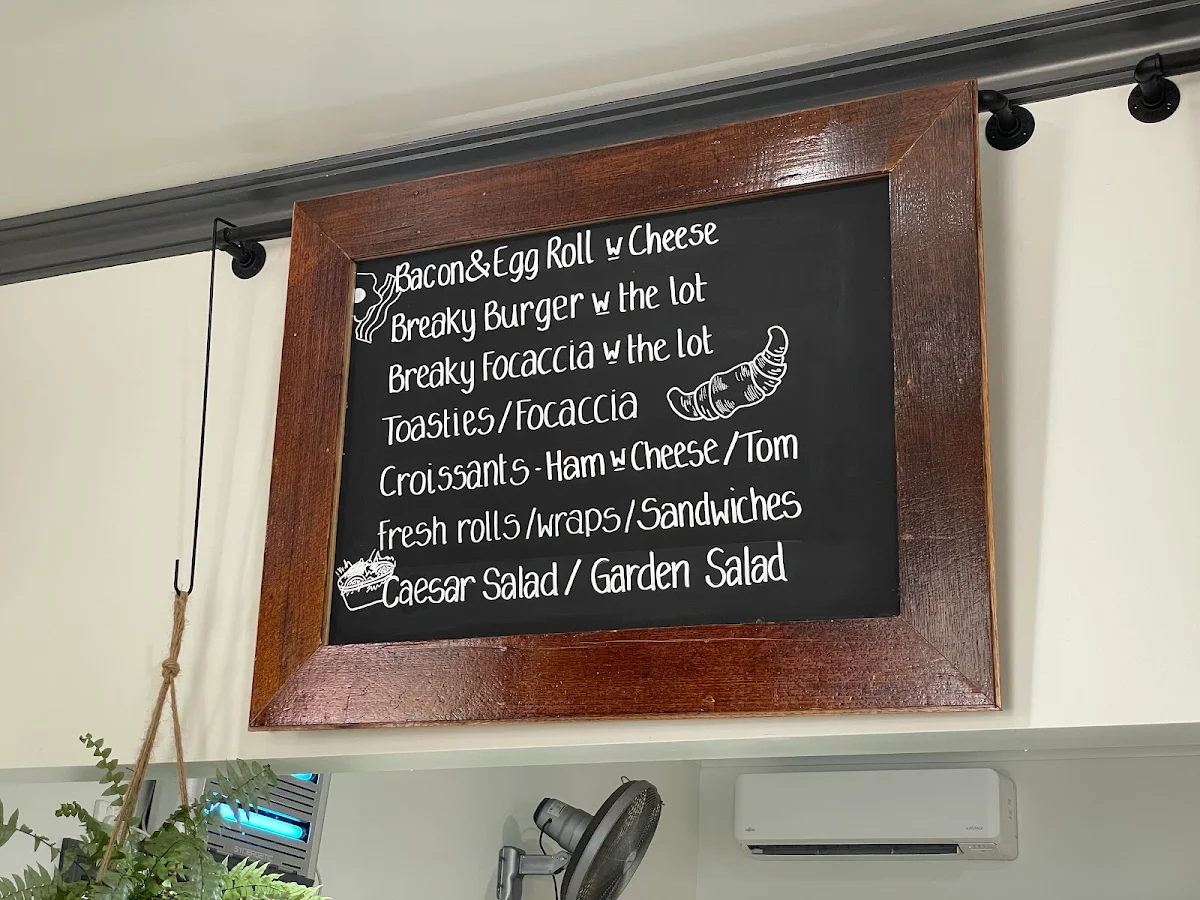 Bacon & Egg Roll w Cheese
Breaky Burger w the lot
Breaky Focaccia w the lot
Toasties/Focaccia
Croissants - Ham w Cheese/Tom
Fresh rolls/wraps/Sandwiches
Caesar Salad / Garden Salad